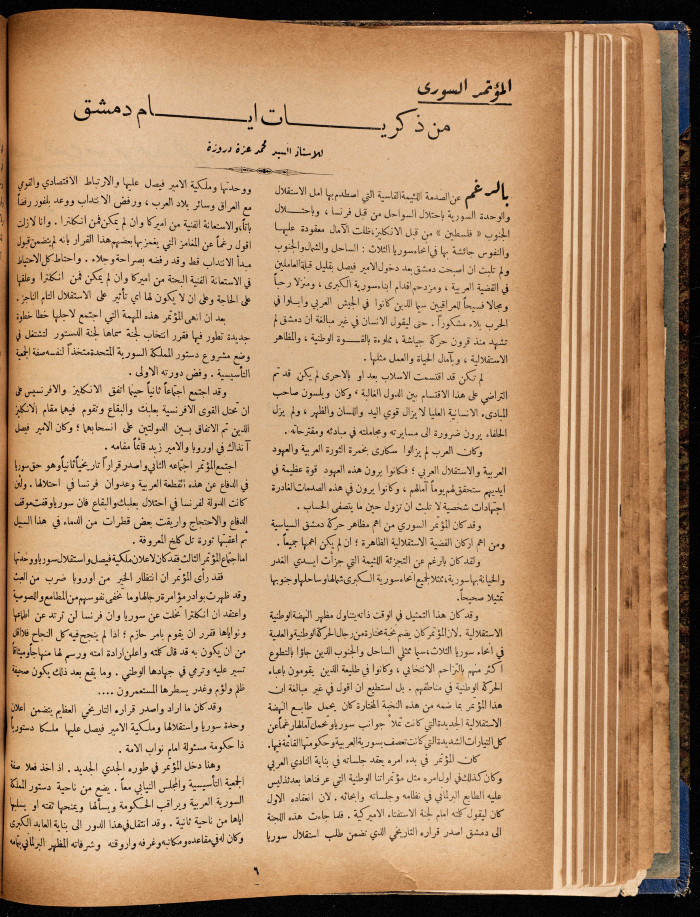 المؤتمر السوري
من ذكريــات ايــام دمشق
للاستاذ السيد محمد عزة دروزة
بالرغم عن الصدمة اللئيمة القاسية التي اصطدم بها امل الاستقلال
والوحدة السورية باحتلال السواحل من قبل فرنسا ، وباحتلال
الجنوب « فلسطين » من قبل الانكليز، ظلت الآمال معقودة عليها
والنفوس جائشة بها في انحاء سوريا الثلاث : الساحل والشمال والجنوب
ولم تلبث ان اصبحت دمشق بعد دخول الامير فيصل بقليل قبلة العاملين
في القضية العربية ، ومزدحم اقدام ابناء سورية الكبرى ، ومنزلا رحباً
ومجالا فسيحاً للعراقيين سيما الذين كانوا في الجيش العربي وابلوا في
الحرب بلاء مشكوراً . حتى ليقول الانسان في غير مبالغة ان دمشق لم
تشهد منذ قرون حركة جياشة ، مملوءة بالقــوة الوطنية ، والمظاهر
الاستقلالية ، وبآمال الحياة والعمل مثلها .
لم تكن قد اقتسمت الاسلاب بعد او بالاحرى لم يكن قد تم
التراضي على هذا الاقتسام بين الدول الغالبة ؛ وكان ويلسون صاحب
المبادىء الانسانية العليا لا يزال قوي اليد واللسان والظهر ، ولم يزل
الحلفاء يرون ضرورة الى مسايرته ومجاملته في مبادئه ومقترحاته .
وكانت العرب لم يزالوا سكارى بخمرة الثورة العربية والعهود
العربية والاستقلال العربي ؛ فكانوا يرون هذه العهود قوة عظيمة في
ايديهم ستحقق لهم يوماً آمالهم ، وكانوا يرون في هذه الصدمات الغادرة
اجتهادات شخصية لا تلبث ان تزول حين ما يتصفى الحساب .
وقد كان المؤتمر السوري من اهم مظاهر حركة دمشق السياسية
ومن اهم اركان القضية الاستقلالية الظاهرة ؛ ان لم يكن اهمها جميعاً .
ولقد كان بالرغم عن التجزئة اللئيمة التي جزأت ايــدي الغدر
والخيانة بها سورية، ممثلا لجميع انحاء سورية الكبرى شمالها وساحلها وجنوبها
تمثيلا صحيحاً.
وقد كان هذا التمثيل في الوقت ذاته يتناول مظهر النهضة الوطنية
الاستقلالية . لان المؤتمر كان يضم نخبة مختارة من رجال الحركة الوطنية والعلمية
في انحاء سوريا الثلاث، سيما ممثلي الساحل والجنوب الذين جاؤا بالتطوع
اكثر منهم بالتزاحم الانتخابي ، وكانوا في طليعة الذين يقومون باعباء
الحركة الوطنية في مناطقهم . بل استطيع ان اقول في غير مبالغة ان
هذا المؤتمر بما ضمه من هذه النخبة المختارة كان يحمل طابــع النهضة
الاستقلالية الجديدة التي كانت تملأ جوانب سوريا وتحمل آمالها رغماً عن
كل التيارات الشديدة التي كانت تعصف بسورية العربية وحكومتها القائمة فيها.
كان المؤتمر في بدء امره يعقد جلساته في بناية النادي العربي
وكان كذلك في اول امره مثل مؤتمراتنا الوطنية التي عرفناها بعد ئذ ليس
عليه الطابع البرلماني في نظامه وجلساته وابحاثه . لان انعقاده الاول
كان ليقول كلمته امام لجنة الاستفتاء الاميركية . فلما جاءت هذه اللجنة
الى دمشق اصدر قراره التاريخي الذي تضمن طلب استقلال سوريا
ووحدتها وملكية الامير فيصل عليها والارتباط الاقتصادي والقومي
مع العراق وسائر بلاد العرب ، ورفض الانتداب ووعد بلفور رفضاً
باتاً، والاستعانة الفنية من اميركا وان لم يمكن فمن انكلترا . وانا لازلت
اقول رغماً عن المغامز التي يغمز بها بعضهم هذا القرار بانه لم يتضمن قبول
مبدأ الانتداب قط وقد رفضه بصراحة وجلاء . واحتاط كل الاحتياط
في الاستعانة الفنية البحتة من اميركا وان لم يمكن فمن انكلترا وعلقها
على الحاجة وعلى ان لا يكون لها اي تأثير على الاستقلال التام الناجز .
بعد ان انهى المؤتمر هذه المهمة التي اجتمع لاجلها خطا خطوة
جديدة تطور فيها فقرر انتخاب لجنة سماها لجنة الدستور لتشتغل في
وضع مشروع دستور المملكة السورية المتحدة متخذاً لنفسه صفة الجمعية
التأسيسية . وفض دورته الاولى .
وقد اجتمع اجتماعاً ثانياً حينما اتفق الانكليز والافرنسيس على
ان تحتل القوى الافرنسية بعلبك والبقاع وتقوم فيهما مقام الانكليز
الذين تم الاتفاق بــين الدولتين على انسحابهما ؛ وكان الامير فيصل
آنذاك في اوروبا والامير زيد قائماً مقامه .
اجتمع المؤتمر اجتماعه الثاني واصدر قراراً تاريخياً ثانياً وهو حق سوريا
في الدفاع عن هذه القطعة العربية وعدوان فرنسا في احتلالها . ولئن
كانت الدولة لفرنسا في احتلال بعلبك والبقاع فان سوريا وقفت موقف
الدفاع والاحتجاج واريقت بعض قطرات من الدماء في هذا السبيل
ثم اعقبتها ثورة تل كلخ المعروفة .
اما اجتماع المؤتمر الثالث فقد كان لاعلان ملكية فيصل واستقلال سوريا ووحدتها
فقد رأى المؤتمر ان انتظار الخير من اوروبا ضرب من العبث
وقد ظهرت بوادر مؤامرة رجالها وما تخفى نفوسهم من المطامع واللصوصية
واعتقد ان انكلترا تخلت عن سوريا وان فرنسا لن ترتد عن اطماعها
ونواياها فقرر ان يقوم بامر حازم ؛ اذا لم ينجح فيه كل النجاح فلا اقل
من ان يكون به قد قال كلمته واعلن ارادة امته ورسم لها منهاجاً وميثاقاً
تسير عليه وترمي في جهادها الوطني . وما يقع بعد ذلك يكون صحيفة
ظلم ولؤم وغدر يسطرها المستعمرون ....
وقد كان ما اراد واصدر قراره التاريخي العظيم يتضمن اعلان
وحدة سوريا واستقلالها وملكية الامير فيصل عليها ملكا دستورياً
ذا حكومة مسئولة امام نواب الامة .
وهنا دخل المؤتمر في طوره الجدي الجديد . اذ اخذ فعلا صفة
الجمعية التأسيسية والمجلس النيابي معاً . يضع من ناحية دستور المملكة
السورية العربية ويراقب الحكومة ويسألها ويمنحها ثقته او يسلبها
اياها من ناحية ثانية . وقد انتقل في هذا الدور الى بناية العابد الكبرى
وكان له في مقاعده ومكاتبه وغرفه واروقته وشرفاته المظهر البرلماني بتمامه
٦